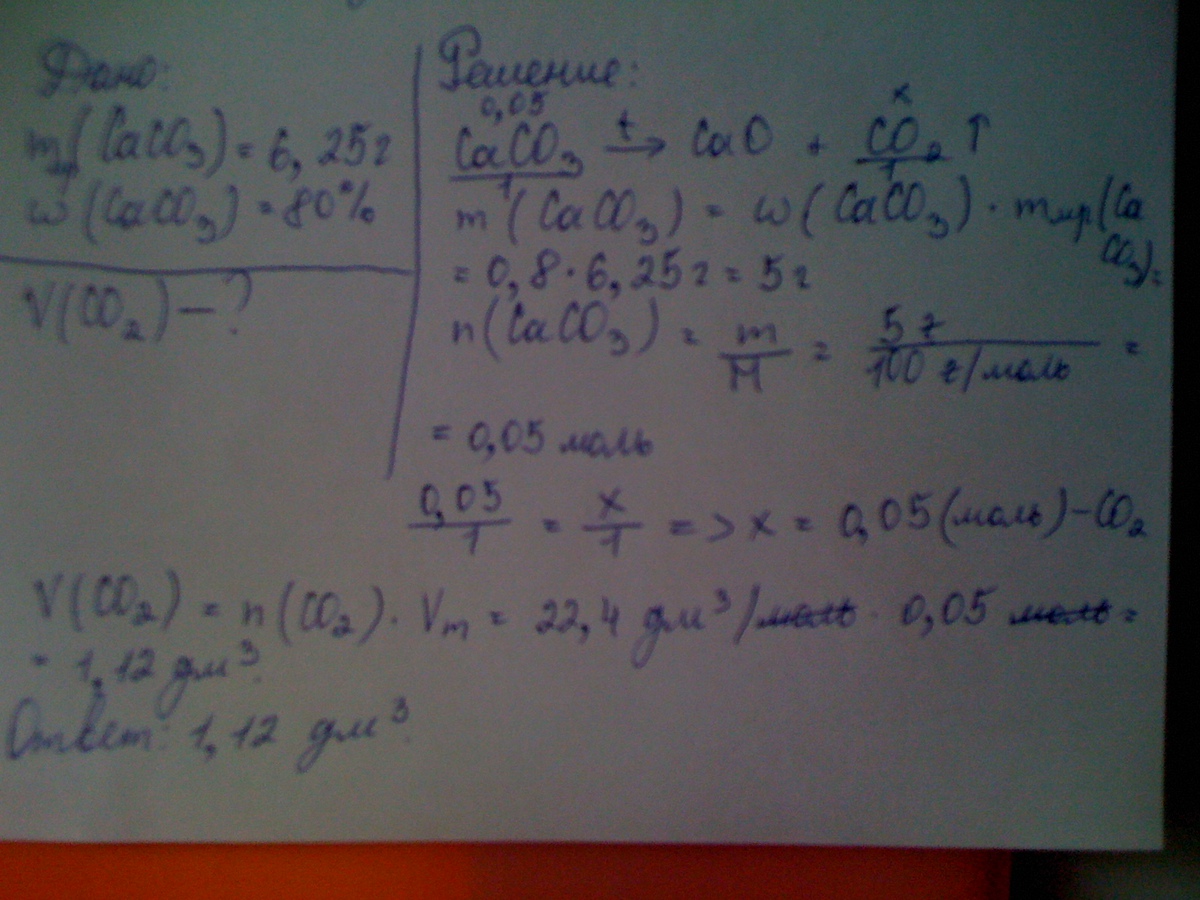 Дано:
mпр(CaCO₃) = 6,25г
w(CaCO₃) = 80%
V(CO₂) — ?
Решение:
0,05 x
CaCO₃ t→ CaO + CO₂↑
1 1
m(CaCO₃) = w(CaCO₃) · mпр(CaCO₃) =
= 0,8 · 6,25г = 5г
n(CaCO₃) = m/M = 5 г/100 г/моль =
= 0,05 моль
0,05/1 = x/1 => x = 0,05(моль) – CO₂
V(CO₂) = n(CO₂) · Vm = 22,4 дм³/моль · 0,05 моль =
= 1,12 дм³.
Ответ: 1,12 дм³.